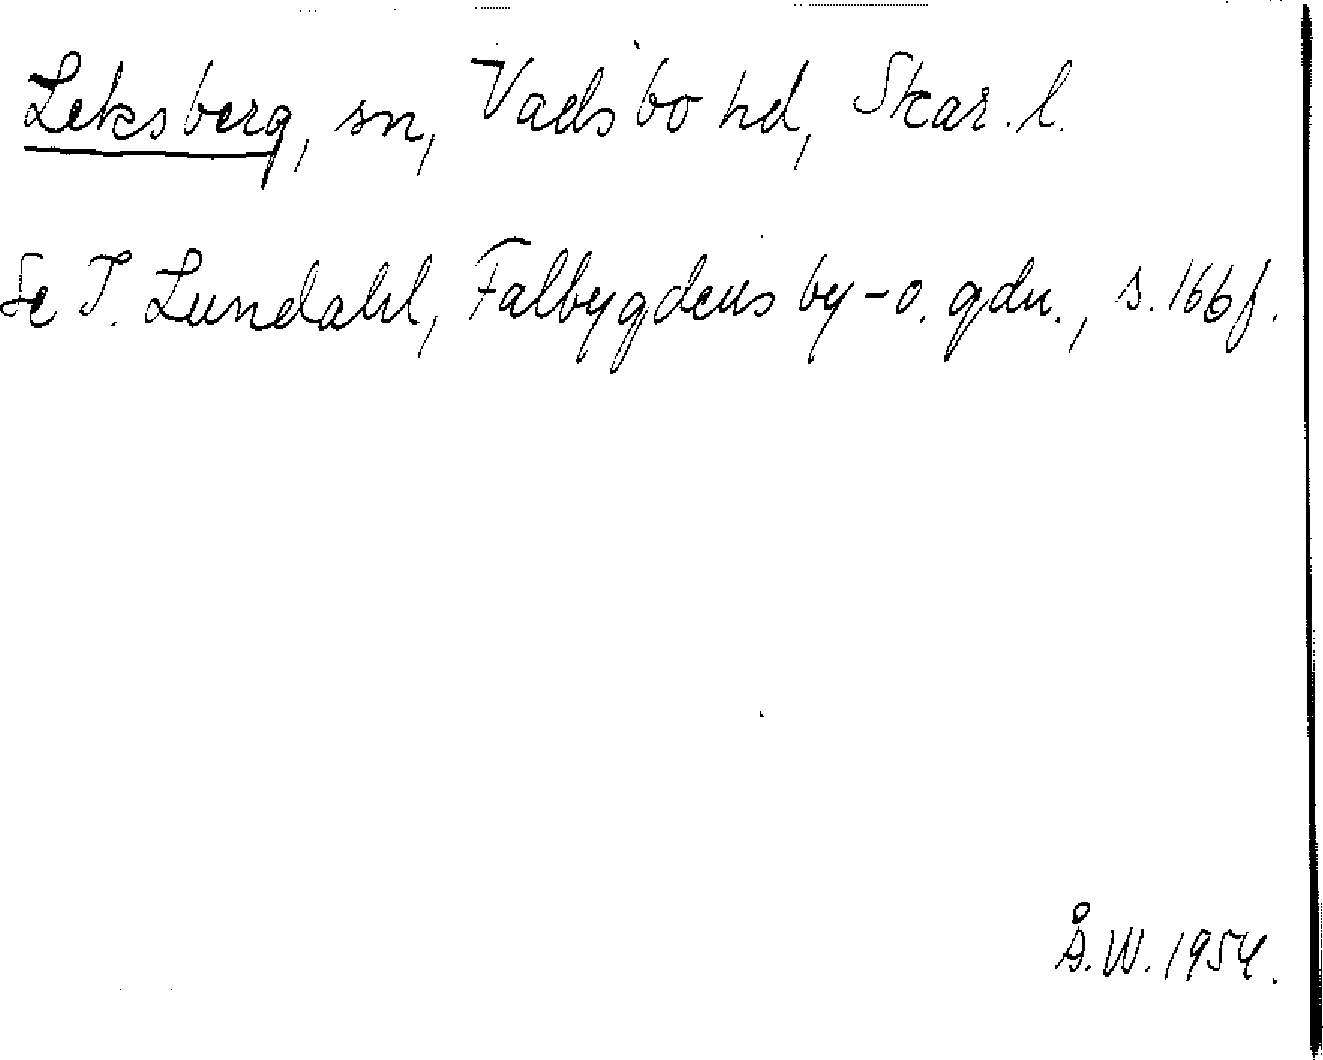 Leksberg, sn, Vadsbo hd, Skar. l.
Se I. Lundahl, Falbygdens by- o. gdn., s. 166 f.
Å. W. 1954.